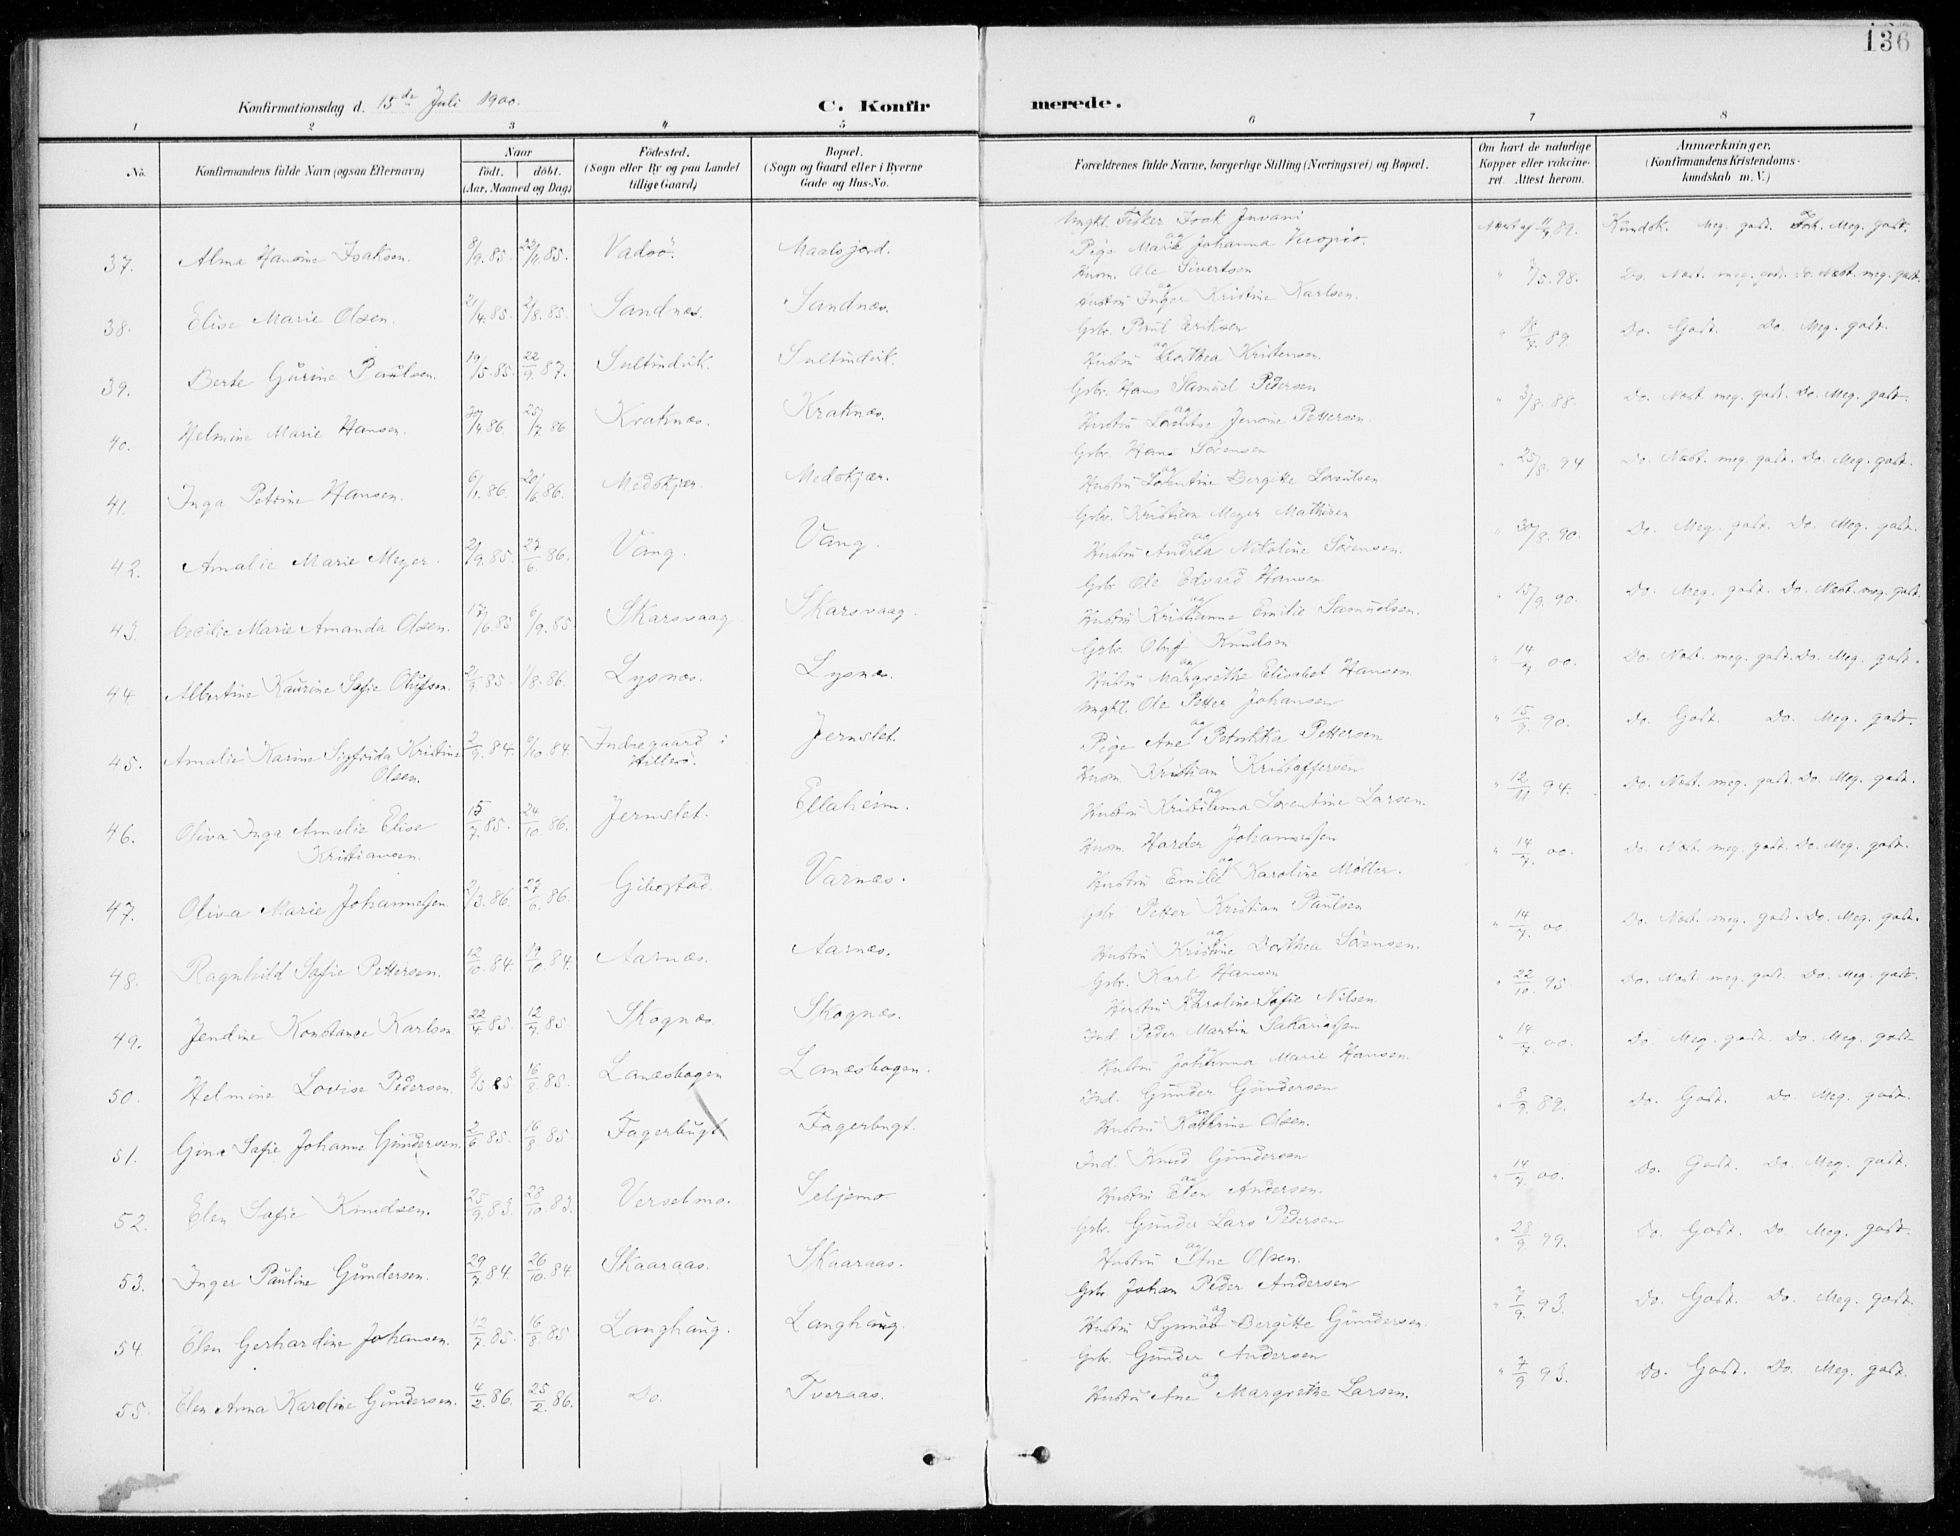 136
Konfirmationsdag d. 15de Juli 1900.
C. Konfirmerede.
1 2 3 4 5 6 7 8
No.
Konfirmandens fulde Navn (ogsaa Efternavn)
Naar
født. døbt.
(Aar, Maaned og Dag)
Fødested.
(Sogn eller By og paa Landet
tillige Gaard)
Bopæl.
(Sogn og Gaard eller i Byerne
Gade og Hus-No.
Forældrenes fulde Navne, borgerlige Stilling (Næringsvei) og Bopæl.
Om havt de naturlige
Kopper eller vakcine-
ret. Attest herom.
Anmærkninger.
(Konfirmandens Kristendoms-
kundskab m. V.)
37. Alma Hansine Isaksen. 8/9.85. 22/11.85. Vadsö. Maalsjord. Ungkl. Fisker Isak Juvani og Pige Marie Johanna Attest af 11/7 89. Kundsk. Meg. godt. Forh. Meg. godt.
38. Elise Marie Olsen. 21/4.85. 2/8.85. Sandnæs. Sandnæs. Husm. Ole Sivertsen og Hustru Inger Kristine Karlsen. " 7/5.98. Do. Næst. meg. godt. Do. Næst. meg. godt.
39. Berte Gurine Paulsen. 19/5.85. 22/9.87. Sultindvik. Sultindvik. Gbr. Paul Eriksen og Hustru Dorthea Kristensen. " 18/7 89 Do. Godt. Do. Meg. godt.
40. Helmine Marie Hansen. 20/4.86. 25/7.86 Kraknæs. Kraknæs. Gbr. Hans Samuel Pedersen og Hustru Lovise Jensine Pettersen. " 3/8.88. Do. Næst meg. godt. Do. Meg. godt.
41. Inga Petrine Hansen. 6/1.86. 20/6.86. Medskjær. Medskjær. Gbr. Hans Sörensen og Hustru Lorentine Bergitte Lorentsen " 25/8.94 Do. Næst. meg. godt. Do. Meg. godt.
42. Amalie Marie Meyer. 2/9.85. 27/6.86. Vang. Vang. Gbr. Kristian Meyer Mathisen og Hustru Andrea Nikoline Sörensen. " 30/8.90. Do. Meg. godt. Do. Meg. godt.
43. Cecilie Marie Amanda Olsen. 17/6.85 6/9.85. Skarsvaag Skarsvaag. Gbr. Ole Edvard Hansen og Hustru Kristianne Emilie Samuelsen. " 15/9.90. Do. Meg. godt. Do. Næst. meg. godt.
44. Albertine Kaurine Sofie Olufsen. 2/9.85 1/8.86. Lysnæs. Lysnæs. Gbr. Oluf Knudsen og Hustru Margrethe Elisabet Hansen. " 14/7 00. Do. Næst. meg. godt. Do. Meg. godt.
45. Amalie Karine Sigfrida Kristine Olsen. 2/9.84. 9/10.84. Indregaard i Hillesö. Jernslet. Ungkl. Ole Petter Johansen og Pige Ane Pettersen " 15/9 90. Do. Godt. Do. Meg. godt.
46. Oliva Inga Amalie Elise Kristiansen. 15/7.85. 24/10.86. Jernslet. Ellaheim. Husm. Kristian Kristoffersen og Hustru Kristianna Lorentine Larsen. " 12/11 94. Do. Næst. meg. godt. Do. Meg. godt.
47. Oliva Marie Johannessen. 2/3.86. 27/6.86. Gibostad. Varnæs. Husm. Harder Johannessen og Hustru Emilie Karoline Möller. " 14/7 00. Do. Næst. meg. godt. Do. Meg. godt.
48. Ragnhild Sofie Pettersen. 12/10.84. 19/10.84. Aarnæs. Aarnæs. Gbr. Petter Kristian Paulsen og Hustru Kristine Dorthea Sörensen. " 14/7 00. Do. Næst. meg. godt. Do. Meg. godt.
49. Jendine Konstance Karlsen 22/4.85. 12/7.85 Skognæs. Skognæs. Gbr. Karl Hansen og Hustru Karoline Sofie Nilsen. " 22/10 95. Do. Næst. meg. godt. Do. Meg. godt.
50. Helmine Lovise Pedersen. 8/5 85 16/8.85. Lanesbogen Lanesbogen. Ind. Peder Martin Sakariassen og Hustru Johanna Marie Hansen. " 14/7 00. Do. Meg. godt. Do. Meg. godt.
51. Gina Sofie Johanne Gundersen. 2/6.85. 16/8.85. Fagerbugt Fagerbugt. Ind. Gunder Gundersen og Hustru Kathrine Olsen. " 8/9 89. Do. Godt. Do. Meg. godt.
52. Elen Sofie Knudsen. 25/9.83. 28/10.83. Verselmo. Seljemo Ind. Knud Gundersen og Hustru Elen Andersen. " 14/7 00. Do. Godt. Do. Meg. godt.
53. Inger Pauline Gundersen. 29/7.84. 26/10.84. Skaaraas. Skaaraas. Gbr. Gunder Lars Pedersen og Hustru Ane Olsen. " 28/9 99. Do. Godt. Do. Meg. godt.
54. Elen Gerhardine Johansen. 12/7.85. 16/8.85 Langhaug. Langhaug. Gbr. Johan Peder Andersen og Hustru Synnöv Bergitte Gundersen. " 7/9 93. Do. Godt. Do. Meg. godt.
55. Elen Anna Karoline Gundersen. 4/2.86. 25/2.86. Do. Tveraas. Gbr. Gunder Andersen og Hustru Ane Margrethe Larsen. " 7/9 93. Do. Godt. Do. Meg. godt.